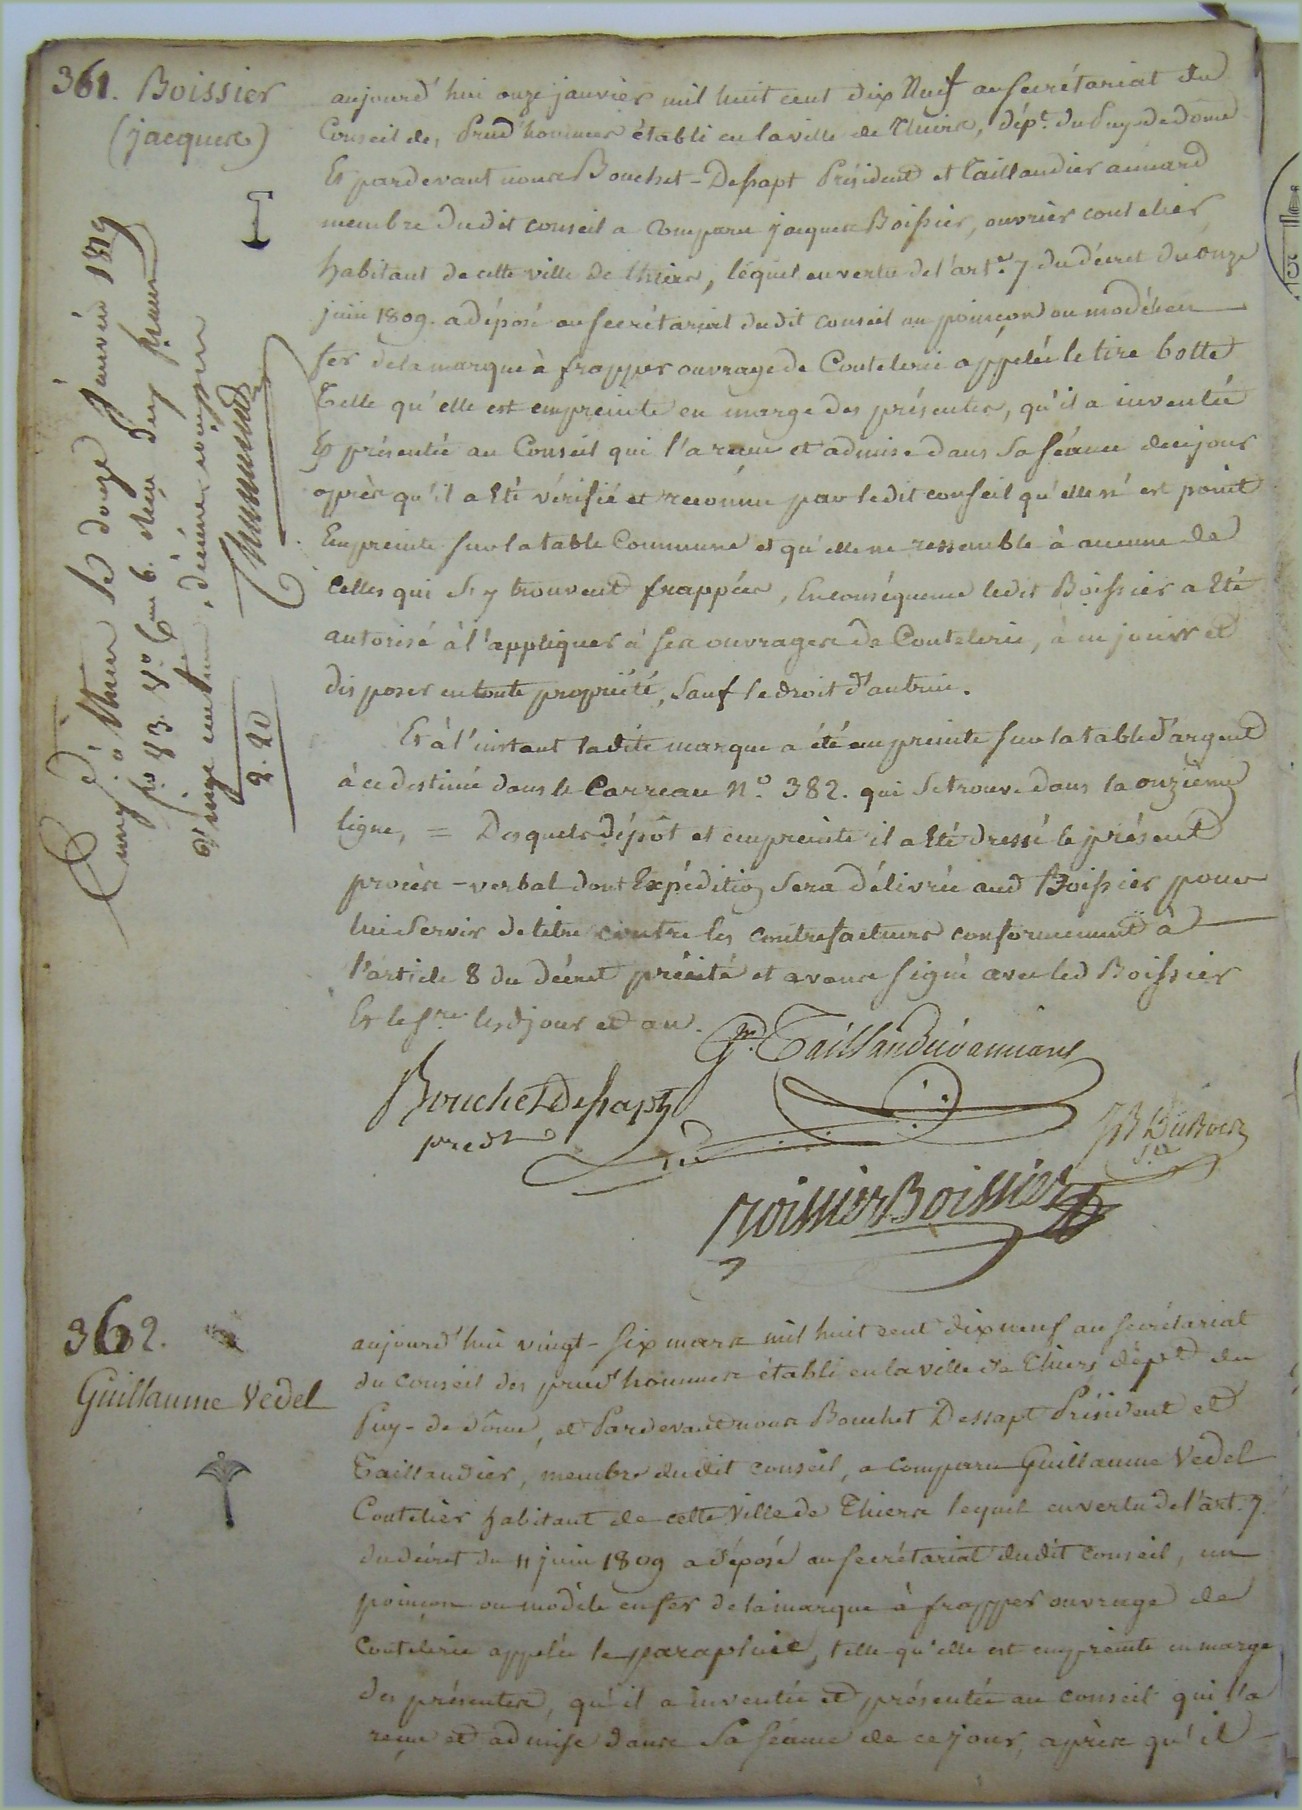 361. Boissier
(jacques)
aujourd'hui onze janvier mil huit cent dix Neuf au Secrétariat du
Conseil des Prud'hommes établi en la ville de Thiers, dépt. du Puy-de-dôme
Et pardevant nous Bouchet-Dessapt Président et Taillandier annard
membre dudit conseil a comparu jacques Boissier, ouvrier coutelier,
habitant de cette ville de thiers, lequel en vertu de l'art. 7 du décret du onze
juin 1809. a déposé au secrétariat dudit conseil un poinçon ou modèle en
fer de la marque à frapper ouvrage de Coutelerie appelée le tire botte
Telle qu'elle est empreinte en marge des présentes, qu'il a inventée
Et présentée au Conseil qui l'a reçue et admise dans sa séance de ce jour
après qu'il a été vérifié et reconnu par le dit conseil qu'elle n'est point
Empreinte sur la table Commune et qu'elle ne ressemble à aucune de
celles qui s'y trouvent frappées, En conséquence ledit Boissier a Eté
autorisé à l'appliquer à ses ouvrages de Coutelerie, à en jouir et
disposer en toute propriété, sauf le droit d'autrui.
Et à l'instant ladite marque a été empreinte sur la table d'argent
à ce destinée dans le Carreau N.o 382. qui se trouve dans la onzième
ligne, = Desquels dépôt et empreinte il a Eté dressé le présent
procès-verbal dont Expédition sera délivrée aud Boissier pour
lui servir de titre contre les contrefacteurs conformément à
l'article 8 du décret précité et avons signé avec led Boissier
Et le sre. lesd jour et an.
Bouchet Dessapt
presdt
Boissier
JB Dubost
sre
Enregé. à Thiers le douze janvier 1819
fo 83. Vo. Ce 6. Reçu deux francs
vingt centimes, dixième compris
2.20
362.
Guillaume Vedel
aujourd'hui vingt-six mars mil huit cent dix neuf au secrétariat
du Conseil des prud'hommes établi en la ville de Thiers dépt du
Puy-de-dôme, et Pardevant nous Bouchet Dessapt Président et
Taillandier, membre dudit conseil, a comparu Guillaume Vedel
Coutelier habitant de cette Ville de Thiers lequel en vertu de l'art. 7.
du décret du 11 juin 1809 a déposé au secrétariat dudit conseil, un
poinçon ou modèle en fer de la marque à frapper ouvrage de
Coutelerie appelée le parapluie, telle qu'elle est empreinte en marge
des présentes, qu'il a inventée et présentée au conseil qui l'a
reçue et admise dans sa séance de ce jour, après qu'il